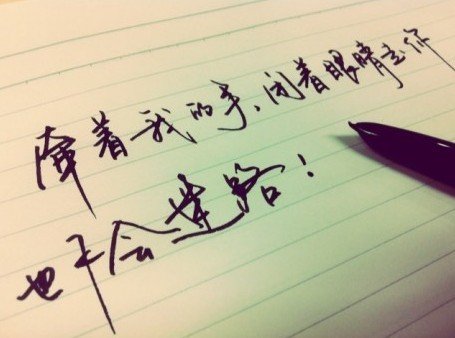 牵着我的手，闭着眼睛走你
也不会迷路！